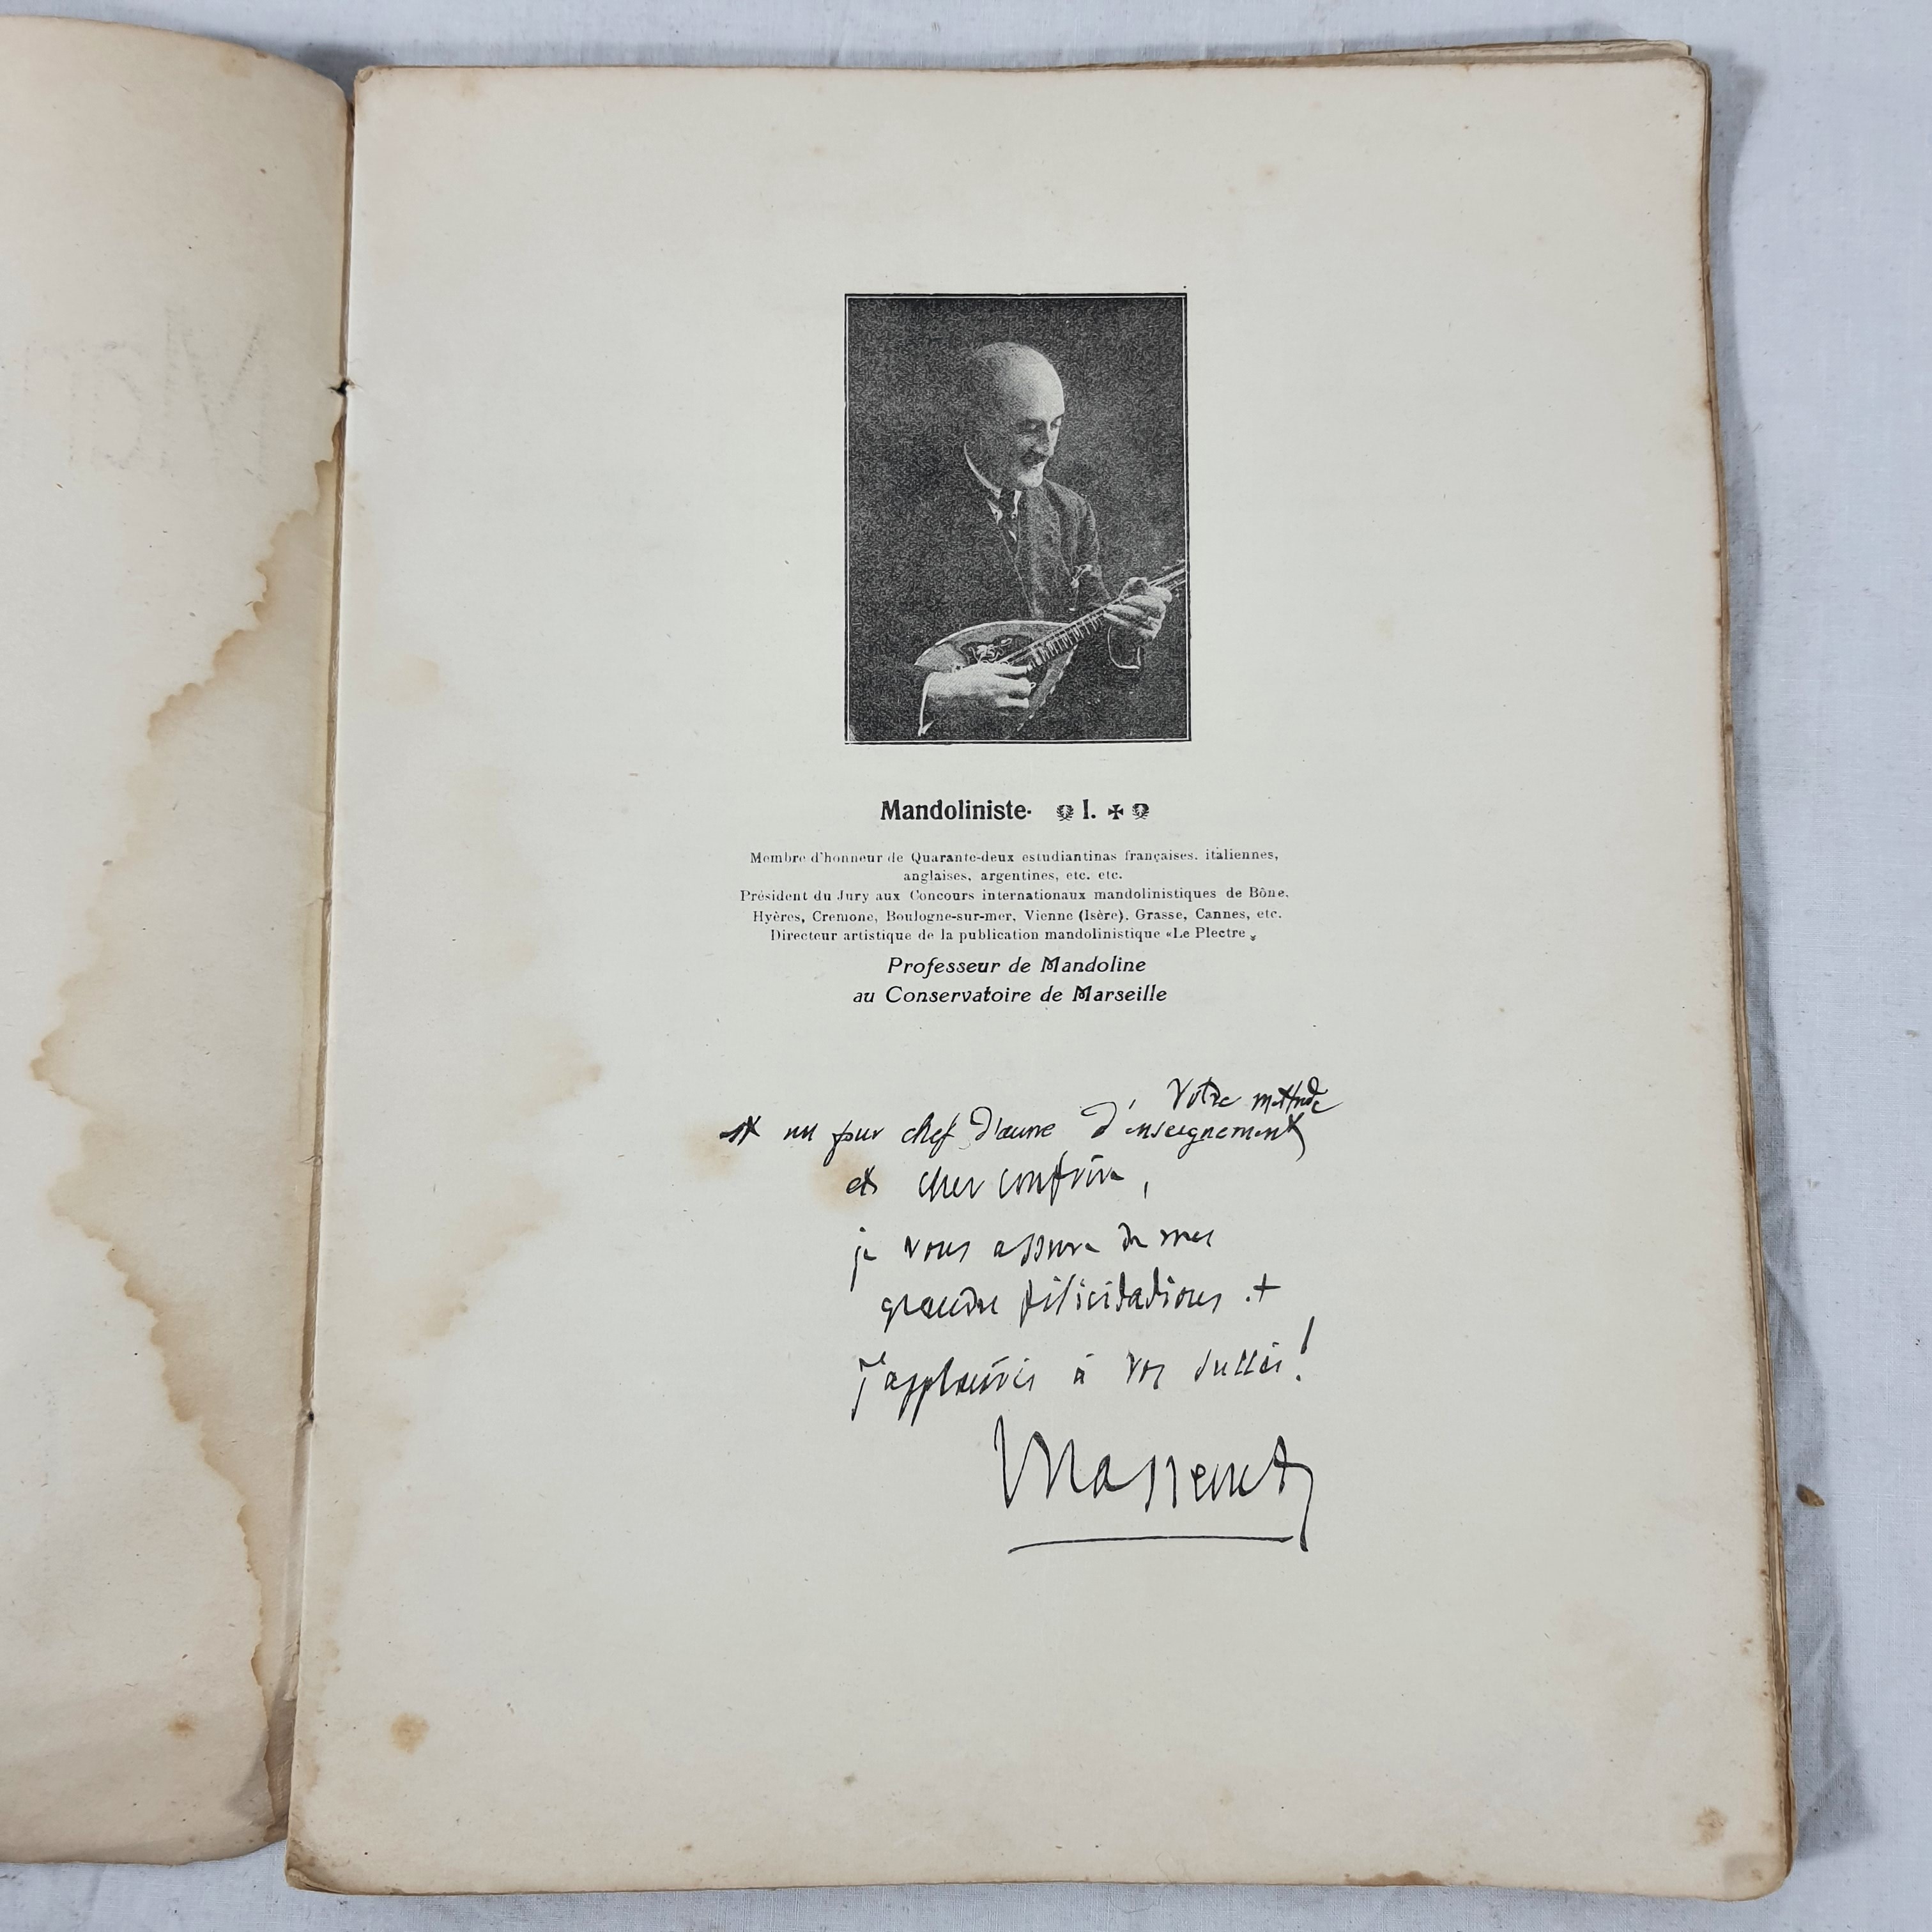 Mandoliniste. I.
Membre d'honneur de Quarante-deux estudiantinas françaises, italiennes,
anglaises, argentines, etc. etc.
Président du Jury aux Concours internationaux mandolinistiques de Bône,
Hyères, Cremone, Boulogne-sur-mer, Vienne (Isère), Grasse, Cannes, etc.
Directeur artistique de la publication mandolinistique «Le Plectre»
Professeur de Mandoline
au Conservatoire de Marseille
Votre méthode
est un pur chef d'œuvre d'enseignement
et cher confrère,
je vous assure de mes
grandes félicitations. +
j'applaudis à vos succès!
Massenet